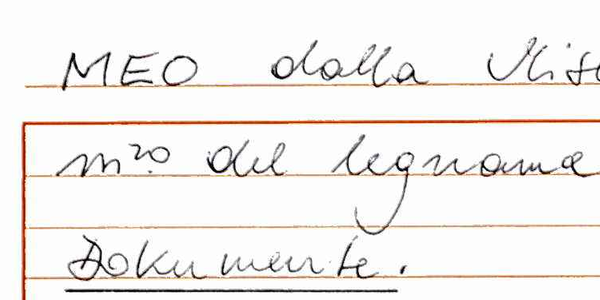 MEO dalla
m.ro del legname
Dokumente.